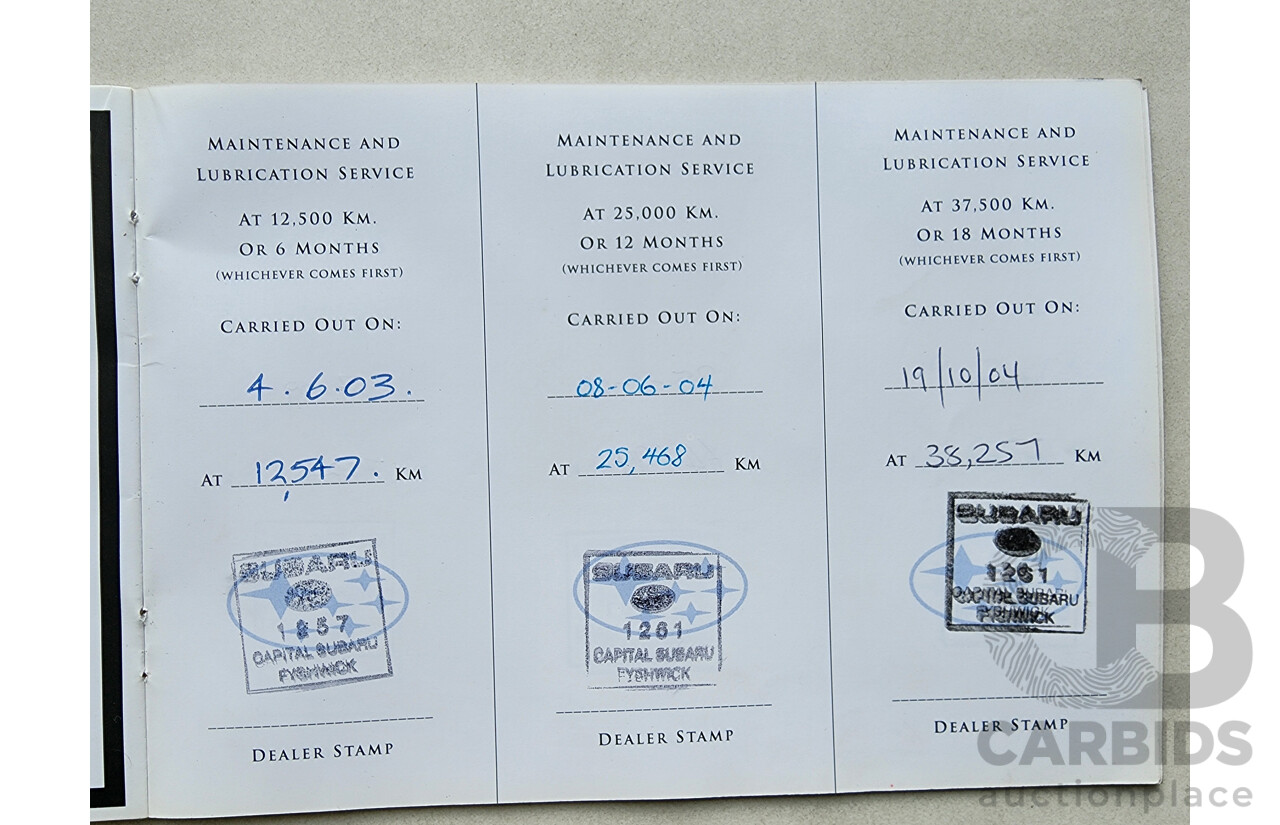 MAINTENANCE AND
LUBRICATION SERVICE
AT 12,500 KM.
OR 6 MONTHS
(WHICHEVER COMES FIRST)
CARRIED OUT ON:
4.6.03.
AT 12,547. KM
SUBARU
1857
CAPITAL SUBARU
FYSHWICK
DEALER STAMP
MAINTENANCE AND
LUBRICATION SERVICE
AT 25,000 KM.
OR 12 MONTHS
(WHICHEVER COMES FIRST)
CARRIED OUT ON:
08-06-04
AT 25,468 KM
SUBARU
1261
CAPITAL SUBARU
FYSHWICK
DEALER STAMP
MAINTENANCE AND
LUBRICATION SERVICE
AT 37,500 KM.
OR 18 MONTHS
(WHICHEVER COMES FIRST)
CARRIED OUT ON:
19/10/04
AT 38,257 KM
SUBARU
1261
CAPITAL SUBARU
FYSHWICK
DEALER STAMP
CARBIDS
auctionplace